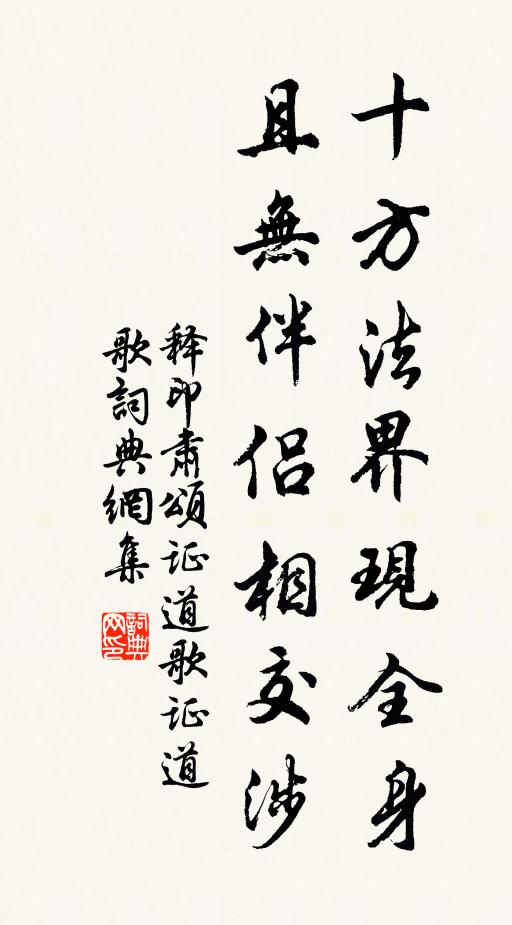 十方法界現全身
且無伴侶相交涉
释印肃頌证道歌证道
歌詞典網集
詞典
网印